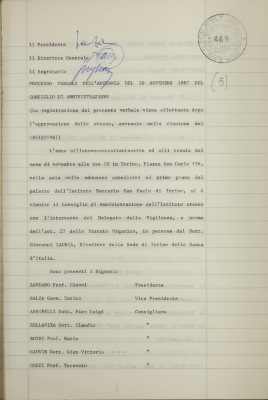 Il Presidente
Il Direttore Generale
Il Segretario
469
(5)
PROCESSO VERBALE DELL'ADUNANZA DEL 30 NOVEMBRE 1987 DEL
CONSIGLIO DI AMMINISTRAZIONE
(La registrazione del presente verbale viene effettuata dopo
l'approvazione dello stesso, avvenuta nella riunione del
L'anno millenovecentoottantasette ed alli trenta del
mese di novembre alle ore 10 in Torino, Piazza San Carlo 156,
nella sala delle adunanze consiliari al primo piano del
palazzo dell'Istituto Bancario San Paolo di Torino, si è
riunito il Consiglio di Amministrazione dell'Istituto stesso
con l'intervento del Delegato della Vigilanza, a norma
dell'art. 27 dello Statuto Organico, in persona del Dott.
Giovanni LAURIA, Direttore della Sede di Torino della Banca
d'Italia.
Sono presenti i Signori:
ZANDANO Prof. Gianni Presidente
SALZA Geom. Enrico Vice Presidente
ARSINELLI Dott. Pier Luigi Consigliere
BELLAVITA Dott. Claudio "
BOIDI Prof. Mario "
CAUVIN Dott. Gian Vittorio "
COZZI Prof. Terenzio "